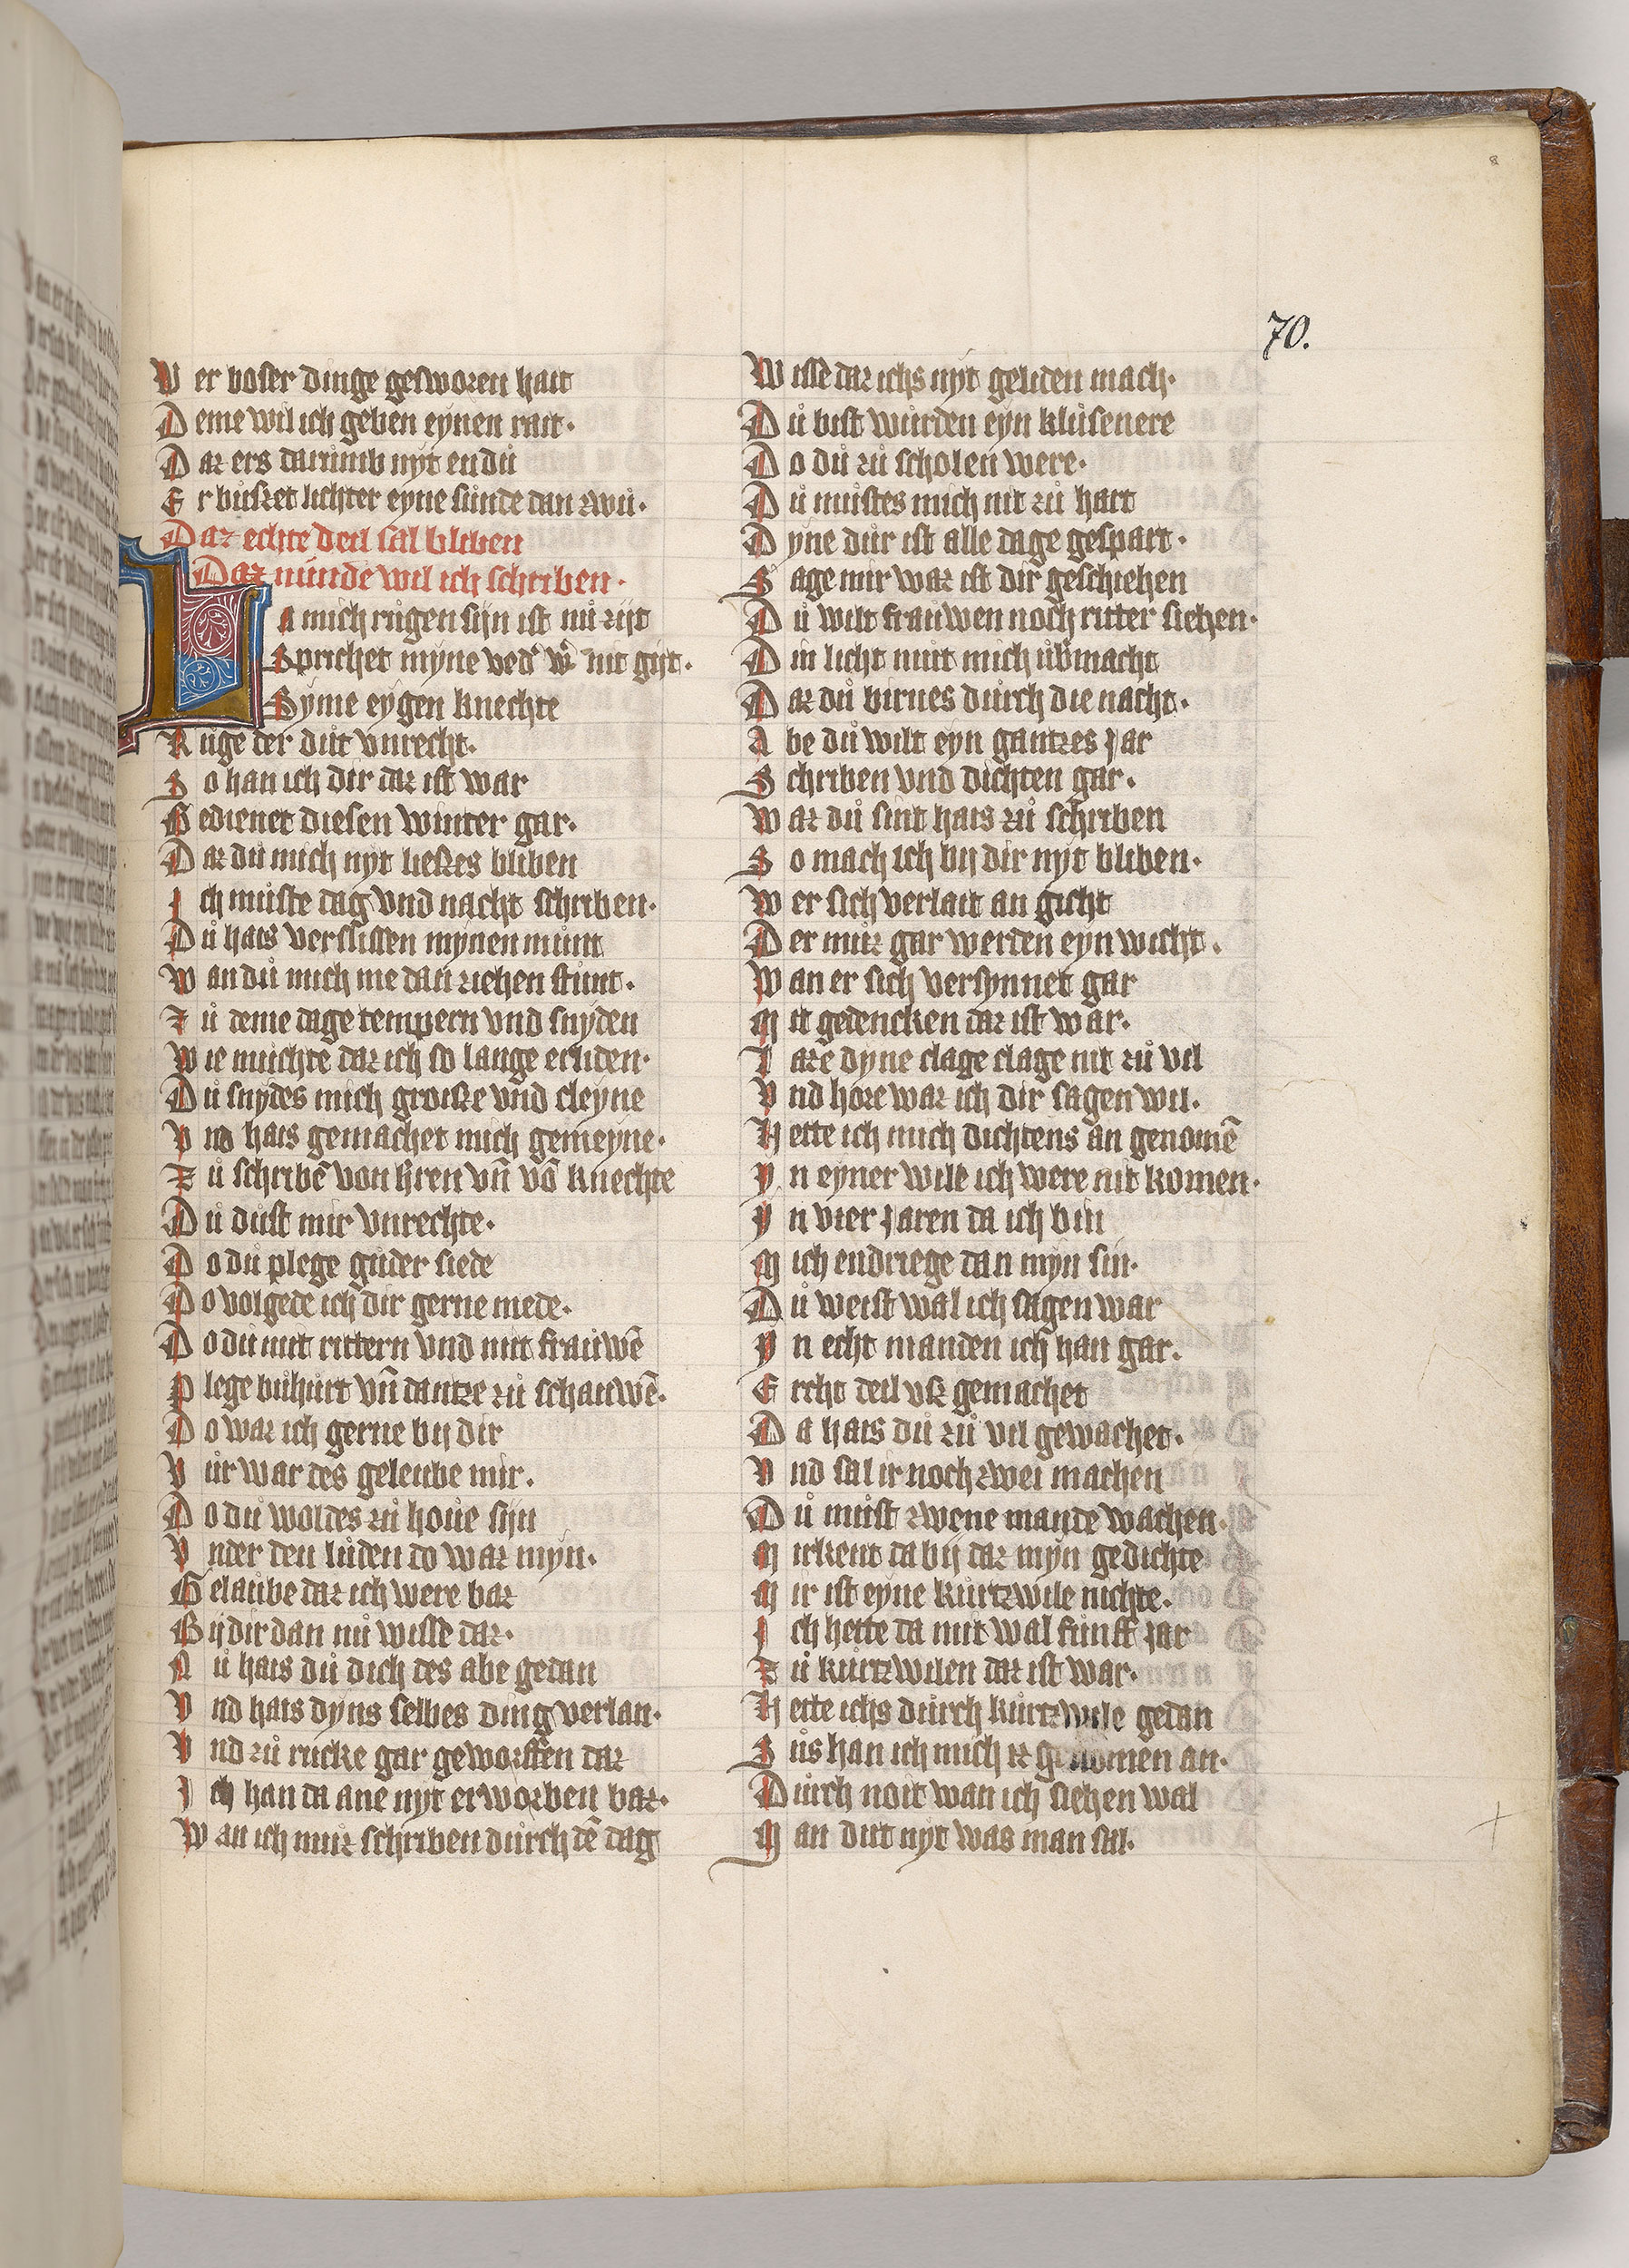 70.
Wer boser dinge gesworen hait
Deme wil ich geben eynen rait·
Daz ers darumb nyt endu
Er bußet lichter eyne sunde dan zwu·
Daz echte deil sal bliben
Daz nunde wil ich schriben·
La mich rugen sijn ist nu zijt
Sprichet myne ved' w' nit git·
Syme eygen knechte
Ruge der dut vnrecht·
So han ich dir daz ist war
Gedienet diesen winter gar·
Daz du mich nyt ließes bliben
Ich muste dag vnd nacht schriben·
Dů hais verslissen mynen munt
Wan dů mich me dan ziehen stunt·
Zů deme dage tempern vnd snyden
Wie muchte daz ich so lange erliden·
Dů snydes mich groiße vnd cleyne
Vnd hais gemachet mich gemeyne·
Zů schribē von h'ren vn̄ vō knechte
Dů dust mir vnrechte·
Do du plege guter siede
Do volgede ich dir gerne mede·
Do du mit rittern vnd mit frauwē
Plege buhurt vn̄ dantze zů schauwē·
Do waz ich gerne bij dir
Vůr war des geleube mir·
Do du woldes zů houe sijn
Vnder den luden do waz myn·
Gelaube daz ich were baz
Bij dir dan nů wisse daz·
Nů hais du dich des abe gedan
Vnd hais dyns selbes ding verlan·
Vnd zů rucke gar geworffen daz
Ich han da ane nyt erworben baz·
Wan ich muz schriben durch dē dag
Wisse daz ichs nyt geliden mach·
Dů bist wurden eyn klusenere
Do dů zů scholen were·
Dů muistes mich nit zů hart
Dyne dur ist alle dage gespart·
Sage mir waz ist dir geschiehen
Dů wilt frauwen noch ritter siehen·
Din licht mut mich ub'macht
Daz dů birnes durch die nacht·
Abe dů wilt eyn gantzes jar
Schriben vnd dichten gar·
Waz dů sint hais zů schriben
So mach ich bij dir nyt bliben·
Wer sich verlait an gicht
Der muz gar werden eyn wicht·
Wan er sich versynnet gar
Mit gedencken daz ist war·
Laze dyne clage clage nit zů vil
Vnd hore waz ich dir sagen wil·
Hette ich mich dichtens an genomē
Yn eyner wile ich were nit komen·
Yn vier jaren da ich bin
Mich endriege dan myn sin·
Dů weist wal ich sagen war
Yn echt manden ich han gar·
Ercht deil vß gemachet
Da hais dů zů vil gewachet·
Vnd sal ir noch zwei machen
Dů must zwene mande wachen·
Mirkent da bij daz myn gedichte
Mir ist eyne kurtzwile nichte·
Ich hette da mit wal funff jar
Zů kurtzwilen daz ist war·
Hette ichs durch kurtzwile gedan
Sůs han ich mich iz genomen an·
Durch noit wan ich siehen wal
Man dut nyt was man sal·